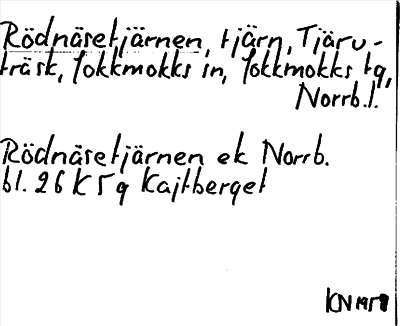 Rödnäsetjärnen, tjärn, Tjäru-
träsk, Jokkmokks sn, Jokkmokks tg,
Norrb.l.
Rödnäsetjärnen ek Norrb.
bl. 26 K 5 g Kajtberget
KN 1958